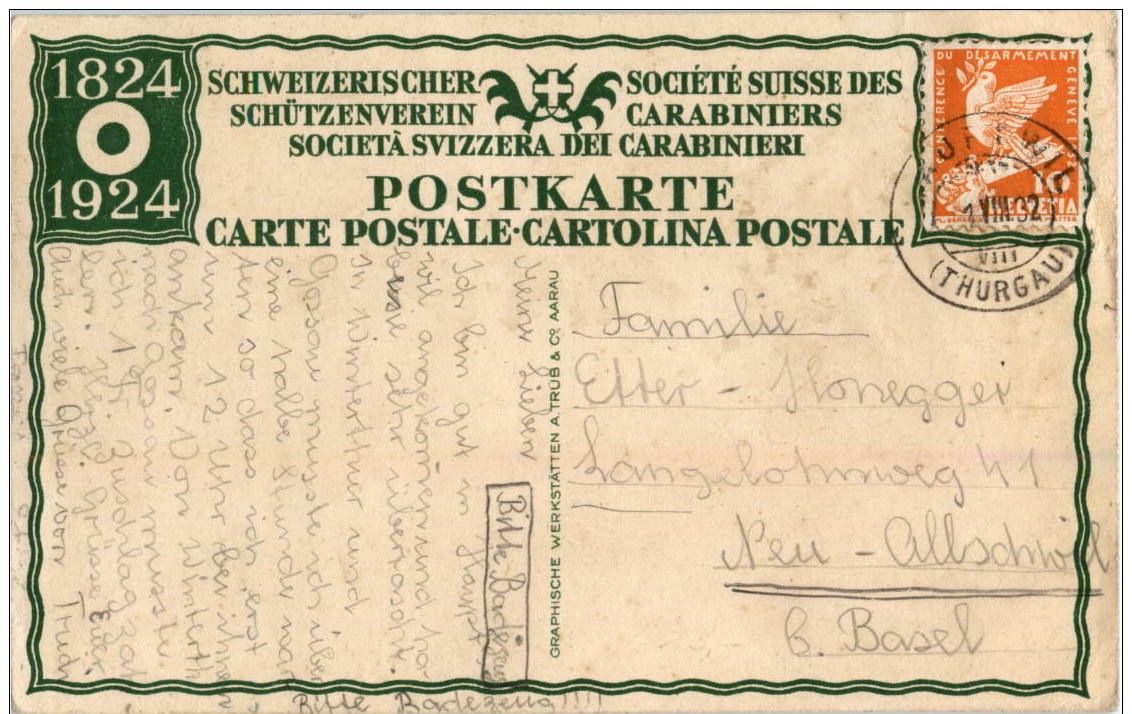 1824
1924
SCHWEIZERISCHER
SCHÜTZENVEREIN
SOCIÉTÉ SUISSE DES
CARABINIERS
SOCIETÀ SVIZZERA DEI CARABINIERI
POSTKARTE
CARTE POSTALE·CARTOLINA POSTALE
DU DÉSARMEMENT GENÈVE
10
HELVETIA
VIII.32
VIII
(THURGAU)
GRAPHISCHE WERKSTÄTTEN A. TRÜB & Co AARAU
Familie
Etter - Honegger
Langelohnweg 41
Neu - Allschwil
b. Basel
Meine Lieben
Ich bin gut in Haupt-
wil angekommen und
sehr überrascht.
In Winterthur und
Gossau musste ich über
eine halbe Stunde war
ten so dass ich erst
um 12 Uhr bei ihnen
ankam. Von Winterth
nach Gossau musste
ich 1 Fr. Zuschlag zah
len. Herzl. Grüsse Euer
Auch viele Grüsse von Trudi
Bitte Badezeug
Bitte Badezeug!!!!